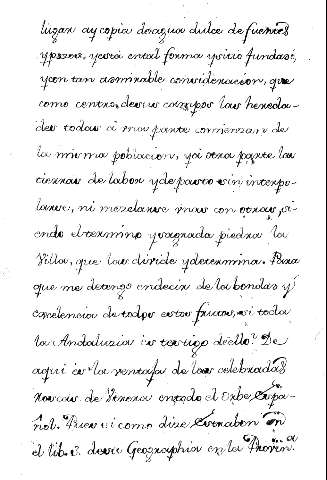 lugar ay copia de agua dulce de fuentes
y pozos, y está en tal forma y sitio fundasé,
y con tan admirable consideracion, que
como centro, de sus campos las hereda-
des todas á una parte comienzan de
la misma poblacion, y á otra parte las
tierras de labor y de pasto sin interpo-
larse, ni mezclarse unas con otras, si-
endo el termino y sagrada piedra la
Villa, que las divide y determina. Para
que me detengo en decir de la bondad y
excelencia de todos estos frutos, si toda
la Andaluzia es testigo dello? De
aqui es la ventaja de las celebradas
de Utrera en todo el Orbe Espa-
ñol. Pues si como dize Estrabon en
el lib. 3. de su Geographia en la Provin.ª